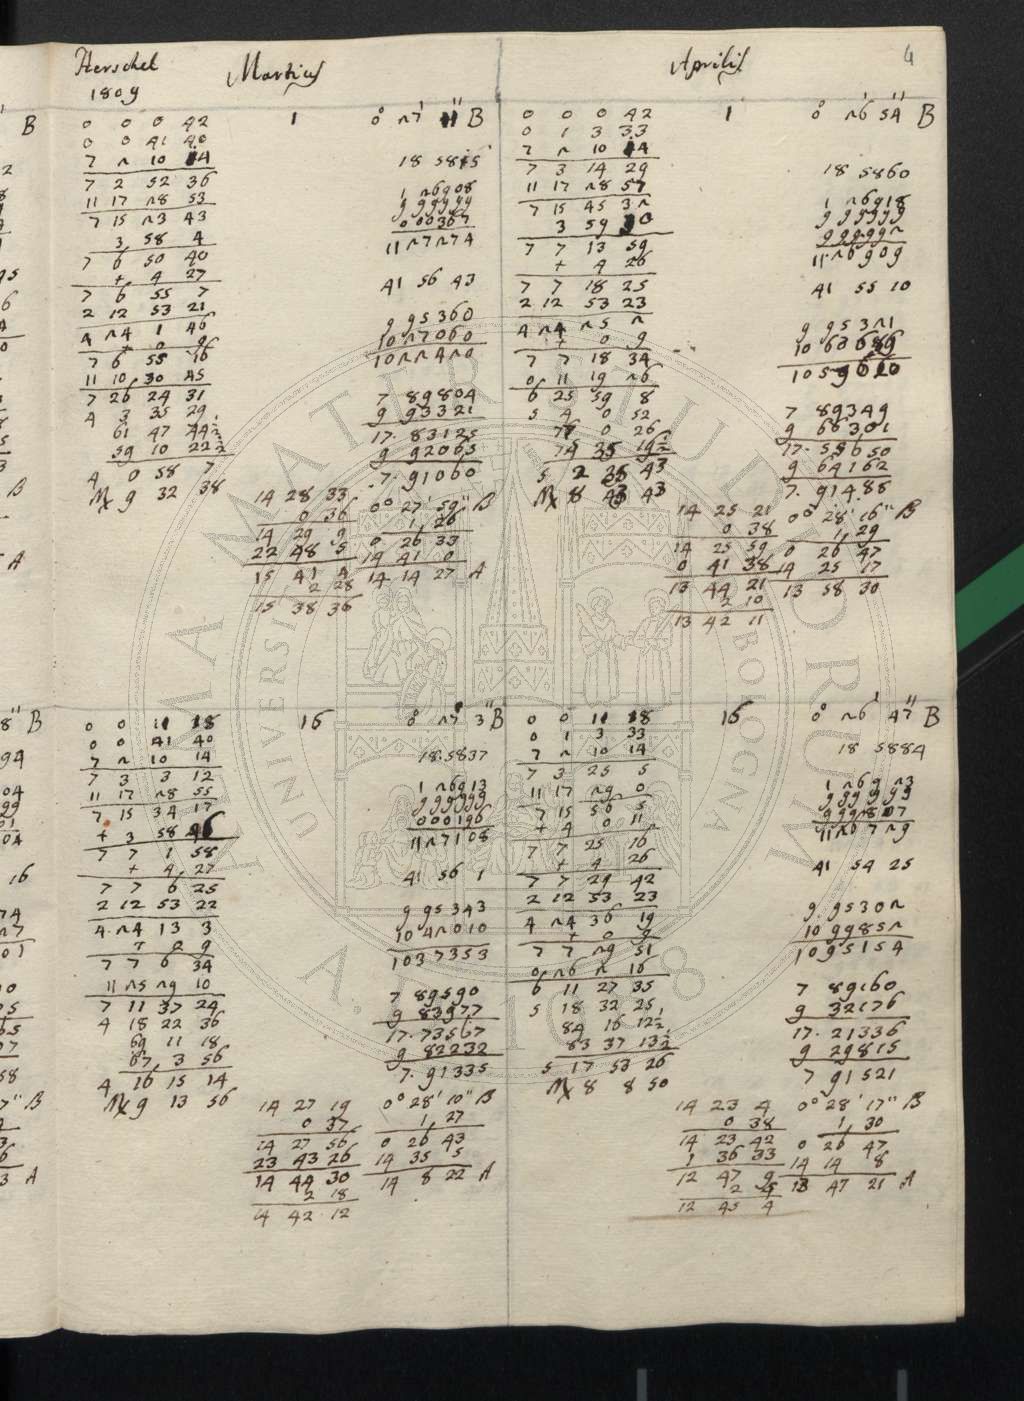 Herschel
1809
Martius
Aprilis
4
0 0 0 42
0 0 41 40
7 2 10 14
7 2 52 36
11 17 28 53
7 15 23 43
3 58 4
7 6 50 40
+ 4 27
7 6 55 7
2 12 53 21
4 24 1 46
+ 0 9
7 6 55 16
11 10 30 45
7 26 24 31
4 3 35 29
61 47 44½
59 10 22½
4 0 58 7
♏ 9 32 38
1
0° 27' 11'' B
18 5815
1 26908
9 99999
0 00367
11 27274
41 56 43
9 95360
10 27060
10 22420
7 89804
9 93321
17.83125
9 92065
7.91060
14 28 33
0 36
14 29 9
22 48 5
15 41 4
2 28
15 38 36
0° 27' 59'' B
1, 26
0 26 33
14 41 0
14 14 27 A
0 0 0 42
0 1 3 33
7 2 10 14
7 3 14 29
11 17 28 57
7 15 45 32
3 59 10
7 7 13 59
+ 4 26
7 7 18 25
2 12 53 23
4 24 25 2
+ 0 9
7 7 18 34
0 11 19 26
6 25 59 8
5 4 0 52
77 0 26
74 35 19½
5 2 35 43
♏ 8 43 43
1
0° 26' 54'' B
18 5860
1 26918
9 99999
9 99992
11.26909
41 55 10
9 95321
10 63689
10 59610
7 89349
9 68301
17.55650
9 64162
7.91488
14 25 21
0 38
14 25 59
0 41 38
13 44 21
2 10
13 42 11
0° 28' 16'' B
1, 29
0 26 47
14 25 17
13 58 30
0 0 11 18
0 0 41 40
7 2 10 14
7 3 3 12
11 17 28 55
7 15 34 17
+ 3 58 46
7 7 1 58
+ 4, 27
7 7 6 25
2 12 53 22
4 24 13 3
+ 0 9
7 7 6 34
11 25 29 10
7 11 37 24
4 18 22 36
69 11 18
67, 3 56
4 16 15 14
♏ 9 13 56
16
0° 27' 3'' B
18.5837
1 26913
9 99999
0 00196
11 27108
41 56 1
9 95343
10 42010
10 37353
7 89590
9 83977
17.73567
9 82232
7.91335
14 27 19
0 37
14 27 56
23 43 26
14 44 30
2 18
14 42 12
0° 28' 10'' B
1, 27
0 26 43
14 35 5
14 8 22 A
0 0 11 18
0 1 3 33
7 2 10 14
7 3 25 5
11 17 29 0
7 15 56 5
+ 4 0 11
7 7 25 16
+ 4 26
7 7 29 42
2 12 53 23
4 24 36 19
+ 0 9
7 7 29 51
0, 26 2 16
6 11 27 35
5 18 32 25
84 16 12½
83 37 13½
5 17 53 26
♏ 8 8 50
16
0° 26' 47'' B
18 5884
1 26923
9 99999
9 99807
11 26729
41 54 25
9.95302
10 99852
10 95154
7 89160
9 32176
17.21336
9 29815
7 91521
14 23 4
0 38
14 23 42
1 36 33
12 47 9
2 5
12 45 4
0° 28' 17'' B
1, 30
0 26 47
14 14 8
13 47 21 A
MATER STUDIORUM
BOLOGNA
1088